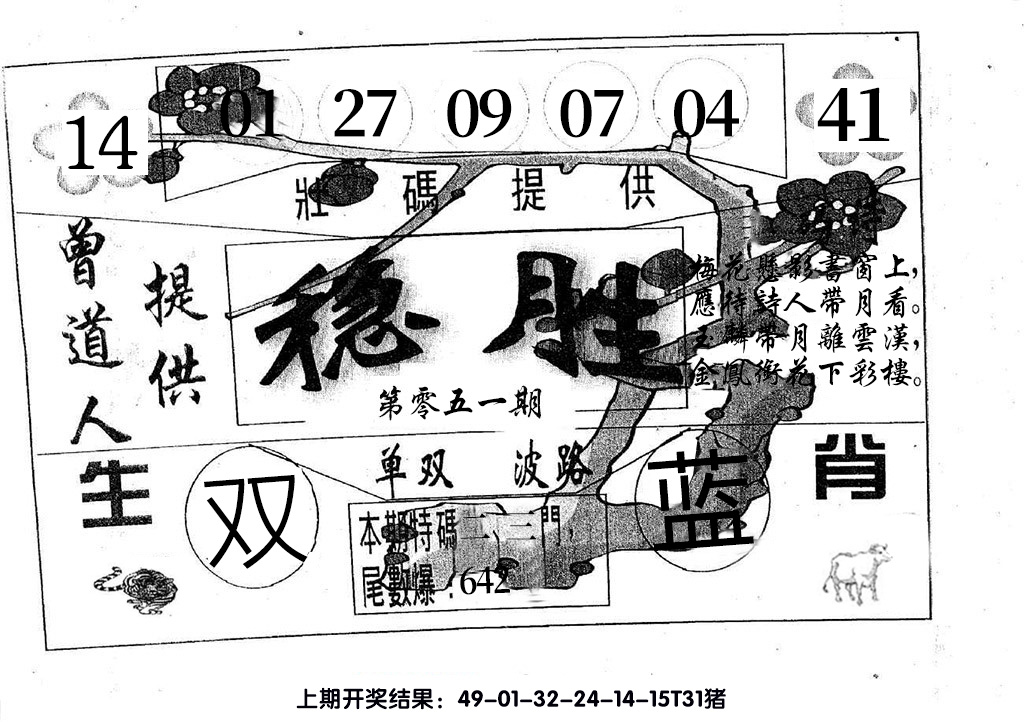 14 01 27 09 07 04 41
壯碼提供
曾道人
提供
稳胜
第零五一期
梅花懸影書窗上，
應待詩人帶月看。
玉麟帶月離雲漢，
金鳳銜花下彩樓。
单双 波路
生 肖
双
蓝
本期特碼二、三門，
尾數爆：642
上期开奖结果：49-01-32-24-14-15T31猪